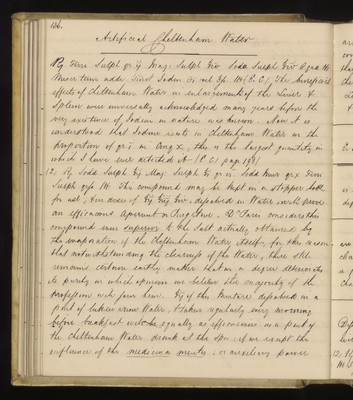 136.
Artificial Cheltenham Water
Rx Ferri Sulph gr ij Mag: Sulph
effects of Cheltenham Water in enlargement of the Liver &
Spleen was universally acknowledged many years before the
very existence of Iodine in nature was known. Now it is
understood that Iodine exists in Cheltenham Water in the
proportion of gr i in Cong x, this is the largest quantity in
which I have ever exhibited it (P. C) page 198)
12. Rx Soda Sulph Mag: Sulph gr vi. Soda Mur gr x Ferri
Sulph M This compound may be kept in a stopper bottle
for use, dissolved in Water will prove
an efficacious Aperient or Purgative. Dr Paris considers this
compound even superior to the Salt actually obtained by
the evaporation of the Cheltenham Water itself, for this reason
that notwithstanding the clearness of the Water, there still
remains certain earthy matter that in a degree deteriorates
its purity in which opinion we believe the majority of the
profession will join him. of this mixture dissolved in a
pint of lukewarm Water, & taken regularly every morning
before breakfast will be equally as efficacious as a pint of
the Cheltenham Water drank at the Spa; if we except the
influence of the medicina mentis, or auxiliary power